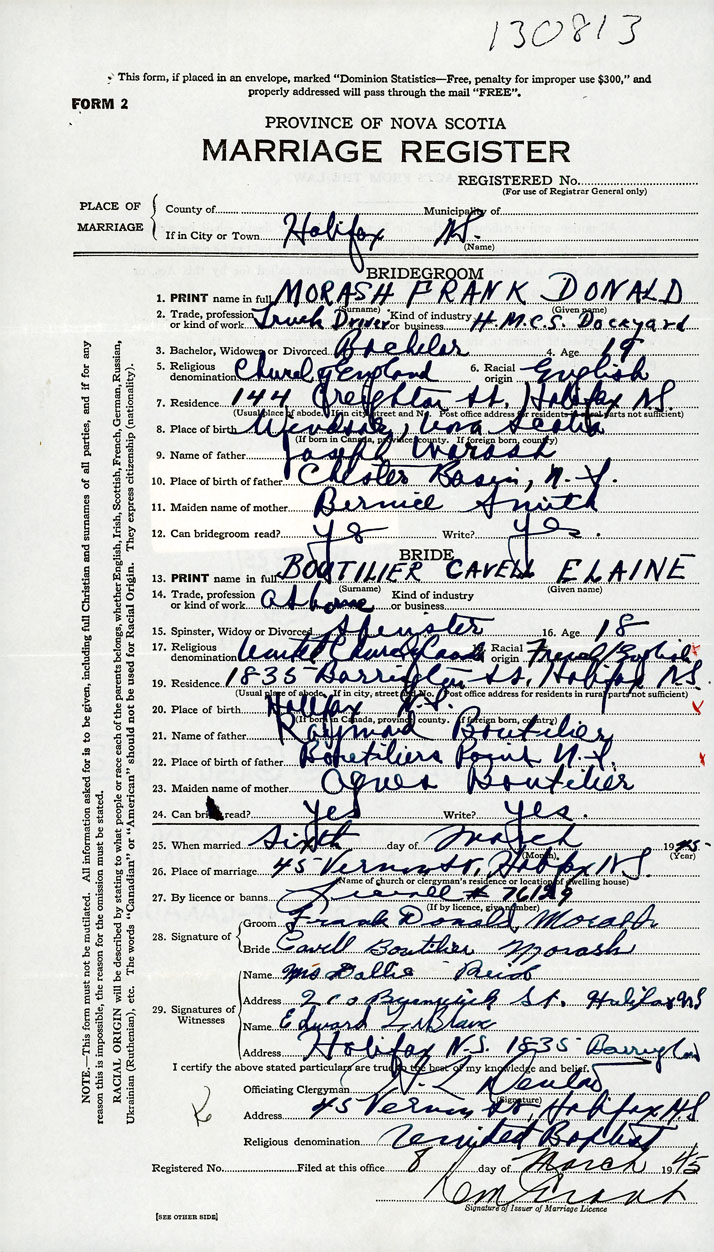 130813
This form, if placed in an envelope, marked "Dominion Statistics—Free, penalty for improper use $300," and
properly addressed will pass through the mail "FREE".
FORM 2
PROVINCE OF NOVA SCOTIA
MARRIAGE REGISTER
REGISTERED No.
(For use of Registrar General only)
PLACE OF MARRIAGE
County of Municipality of
If in City or Town Halifax N.S.
(Name)
BRIDEGROOM
1. PRINT name in full MORASH FRANK DONALD
(Surname) (Given name)
2. Trade, profession or kind of work Truck Driver Kind of industry or business H.M.C.S. Dockyard
3. Bachelor, Widower or Divorced Bachelor 4. Age 19
5. Religious denomination Church of England 6. Racial origin English
7. Residence 144 Creighton St. Halifax N.S.
(Usual place of abode. If in city, street and No. Post office address for residents in rural parts not sufficient)
8. Place of birth Windsor, Nova Scotia
(If born in Canada, province, county. If foreign born, country)
9. Name of father Joseph Morash
10. Place of birth of father Chester Basin, N.S.
11. Maiden name of mother Bernice Smith
12. Can bridegroom read? yes Write? yes.
BRIDE
13. PRINT name in full BOUTILIER CAVELL ELAINE
(Surname) (Given name)
14. Trade, profession or kind of work At home Kind of industry or business
15. Spinster, Widow or Divorced Spinster 16. Age 18
17. Religious denomination United Church 18. Racial origin French/English
19. Residence 1835 Barrington St. Halifax N.S.
(Usual place of abode. If in city, street and No. Post office address for residents in rural parts not sufficient)
20. Place of birth Halifax N.S.
(If born in Canada, province, county. If foreign born, country)
21. Name of father Raymond Boutilier
22. Place of birth of father Boutiliers Point N.S.
23. Maiden name of mother Agnes Boutilier
24. Can bride read? Yes Write? Yes.
25. When married Sixth day of March 1945
(Month) (Year)
26. Place of marriage 45 Vernon St, Halifax N.S.
(Name of church or clergyman's residence or location of dwelling house)
27. By licence or banns # 76129
(If by licence, give number)
28. Signature of
Groom Frank Donald Morash
Bride Cavell Boutilier Morash
29. Signatures of Witnesses
Name Mrs Dollie Reid
Address 200 Brunswick St. Halifax NS
Name Edward LeBlanc
Address Halifax N.S. 1835 Barrington
I certify the above stated particulars are true to the best of my knowledge and belief.
Officiating Clergyman
(Signature)
Address 45 Vernon St. Halifax N.S.
Religious denomination United Baptist
Registered No. Filed at this office 8 day of March 1945
Signature of Issuer of Marriage Licence
[SEE OTHER SIDE]
NOTE.—This form must not be mutilated. All information asked for is to be given, including full Christian and surnames of all parties, and if for any
reason this is impossible, the reason for the omission must be stated.
RACIAL ORIGIN will be described by stating to what people or race each of the parents belongs, whether English, Irish, Scottish, French, German, Russian,
Ukrainian (Ruthenian), etc. The words "Canadian" or "American" should not be used for Racial Origin. They express citizenship (nationality).